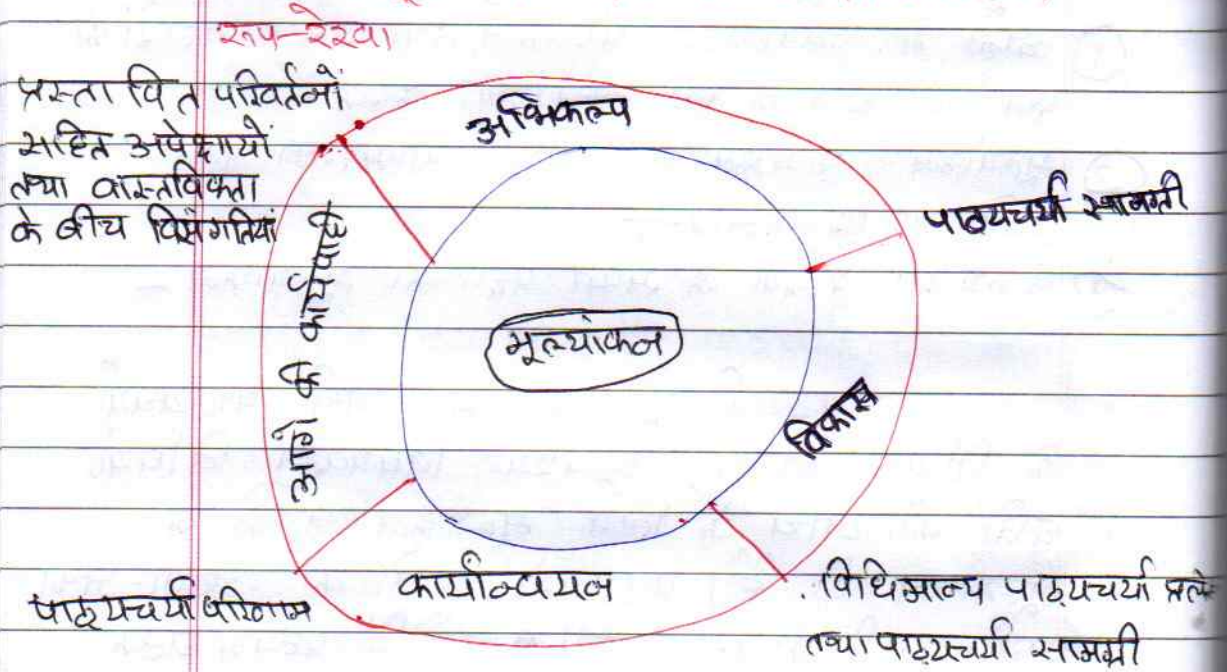 रूप-रेखा
प्रस्तावित परिवर्तनों
सहित अपेक्षायों
तथा वास्तविकता
के बीच विसंगतियां
अभिकल्प
पाठ्यचर्या सामग्री
आगे के कार्यपाद
मूल्यांकन
विकास
पाठ्यचर्या परिणाम
कार्यान्वयन
विधिमान्य पाठ्यचर्या प्रले
तथा पाठ्यचर्या सामग्री